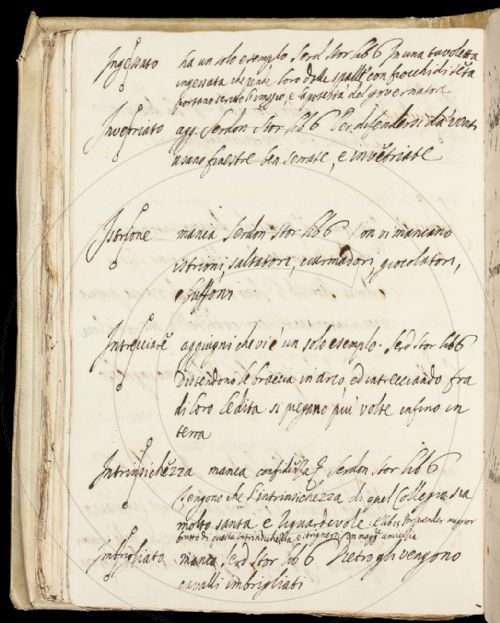 Ingessato ha un solo esempio. Serd. Stor. lib 6 In una tavoletta
ingessata che pende loro dalle spalle con fiocchi di seta
portano scritto, e la potestà del governatore
Invetriato agg. Serdon. Stor. lib 6 Per difendersi da venti
usano finestre ben serrate, e invetriate
Istrione manca Serdon. Stor. lib 6 Non vi mancano
istrioni, saltatori, ciurmadori, giocolatori,
e buffoni
Intrecciare aggiugni che vi è un solo esempio. Serd. Stor. lib 6
Distendono le braccia in arco, ed intrecciando fra
di loro le dita si piegano più volte infino in
terra
Intrinsichezza manca Serdon. Stor. lib 6
tengono che l'intrinsichezza di quel Collegio sia
molto santa e riguardevole
Imbrigliato manca Serd. Stor. lib 6 Dietro gli vengono
cavalli imbrigliati